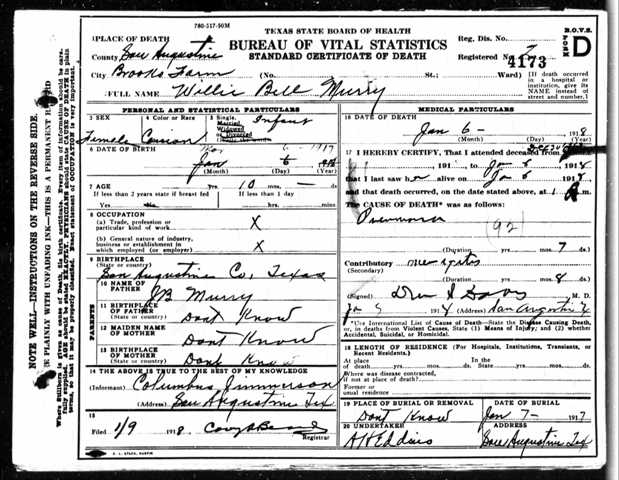 780-517-50M
TEXAS STATE BOARD OF HEALTH
BUREAU OF VITAL STATISTICS
STANDARD CERTIFICATE OF DEATH
B.O.V.S.
FORM D
Reg. Dis. No.
Registered No. 4173
1 PLACE OF DEATH
County San Augustine
City Brooks Farm (No. St.; Ward)
[If death occurred in a hospital or institution give its NAME instead of street and number.]
2 FULL NAME Willie Bell Murry
PERSONAL AND STATISTICAL PARTICULARS
3 SEX Female
4 Color or Race
5 Single, Married, Widowed or Divorced Infant
6 DATE OF BIRTH
Jan 6
(Month) (Day) (Year)
7 AGE
If less than 2 years state if breast fed If less than 1 day
10 mos.
Yes No hrs. min.
8 OCCUPATION
(a) Trade, profession or particular kind of work X
(b) General nature of industry, business or establishment in which employed (or employer) X
9 BIRTHPLACE
(State or country) San Augustine Co, Texas
PARENTS
10 NAME OF FATHER JB Murry
11 BIRTHPLACE OF FATHER (State or country) Dont Know
12 MAIDEN NAME OF MOTHER Dont Know
13 BIRTHPLACE OF MOTHER (State or country) Dont Know
14 THE ABOVE IS TRUE TO THE BEST OF MY KNOWLEDGE
(Informant) Columbus Jimmerson
(Address) San Augustine Tex
15
Filed 1/9 1918
Registrar
MEDICAL PARTICULARS
16 DATE OF DEATH
Jan 6 - 1918
(Month) (Day) (Year)
17 I HEREBY CERTIFY, That I attended deceased from
191 , to Jan 6 1918
that I last saw h alive on Jan 6 1918
and that death occurred, on the date stated above, at 1 m.
The CAUSE OF DEATH* was as follows:
Pneumonia
(92)
(Duration) yrs. mos. 7 ds.
Contributory
(Secondary)
(Duration) yrs. mos. 8 ds.
(Signed) M. D.
191 (Address) San Augustine Tx
*Use International List of Cause of Death—State the Disease Causing Death, or, in deaths from Violent Causes, State (1) Means of Injury; and (2) whether Accidental, Suicidal, or Homicidal.
18 LENGTH OF RESIDENCE (For Hospitals, Institutions, Transients, or Recent Residents.)
At place of death yrs. mos. ds. In the State yrs. mos. ds.
Where was disease contracted, if not at place of death?
Former or usual residence
19 PLACE OF BURIAL OR REMOVAL Dont Know
DATE OF BURIAL Jan 7 - 1917
20 UNDERTAKER A H Eddins
ADDRESS San Augustine Tex
NOTE WELL—INSTRUCTIONS ON THE REVERSE SIDE.
PLAINLY WITH UNFADING INK—THIS IS A PERMANENT RECORD